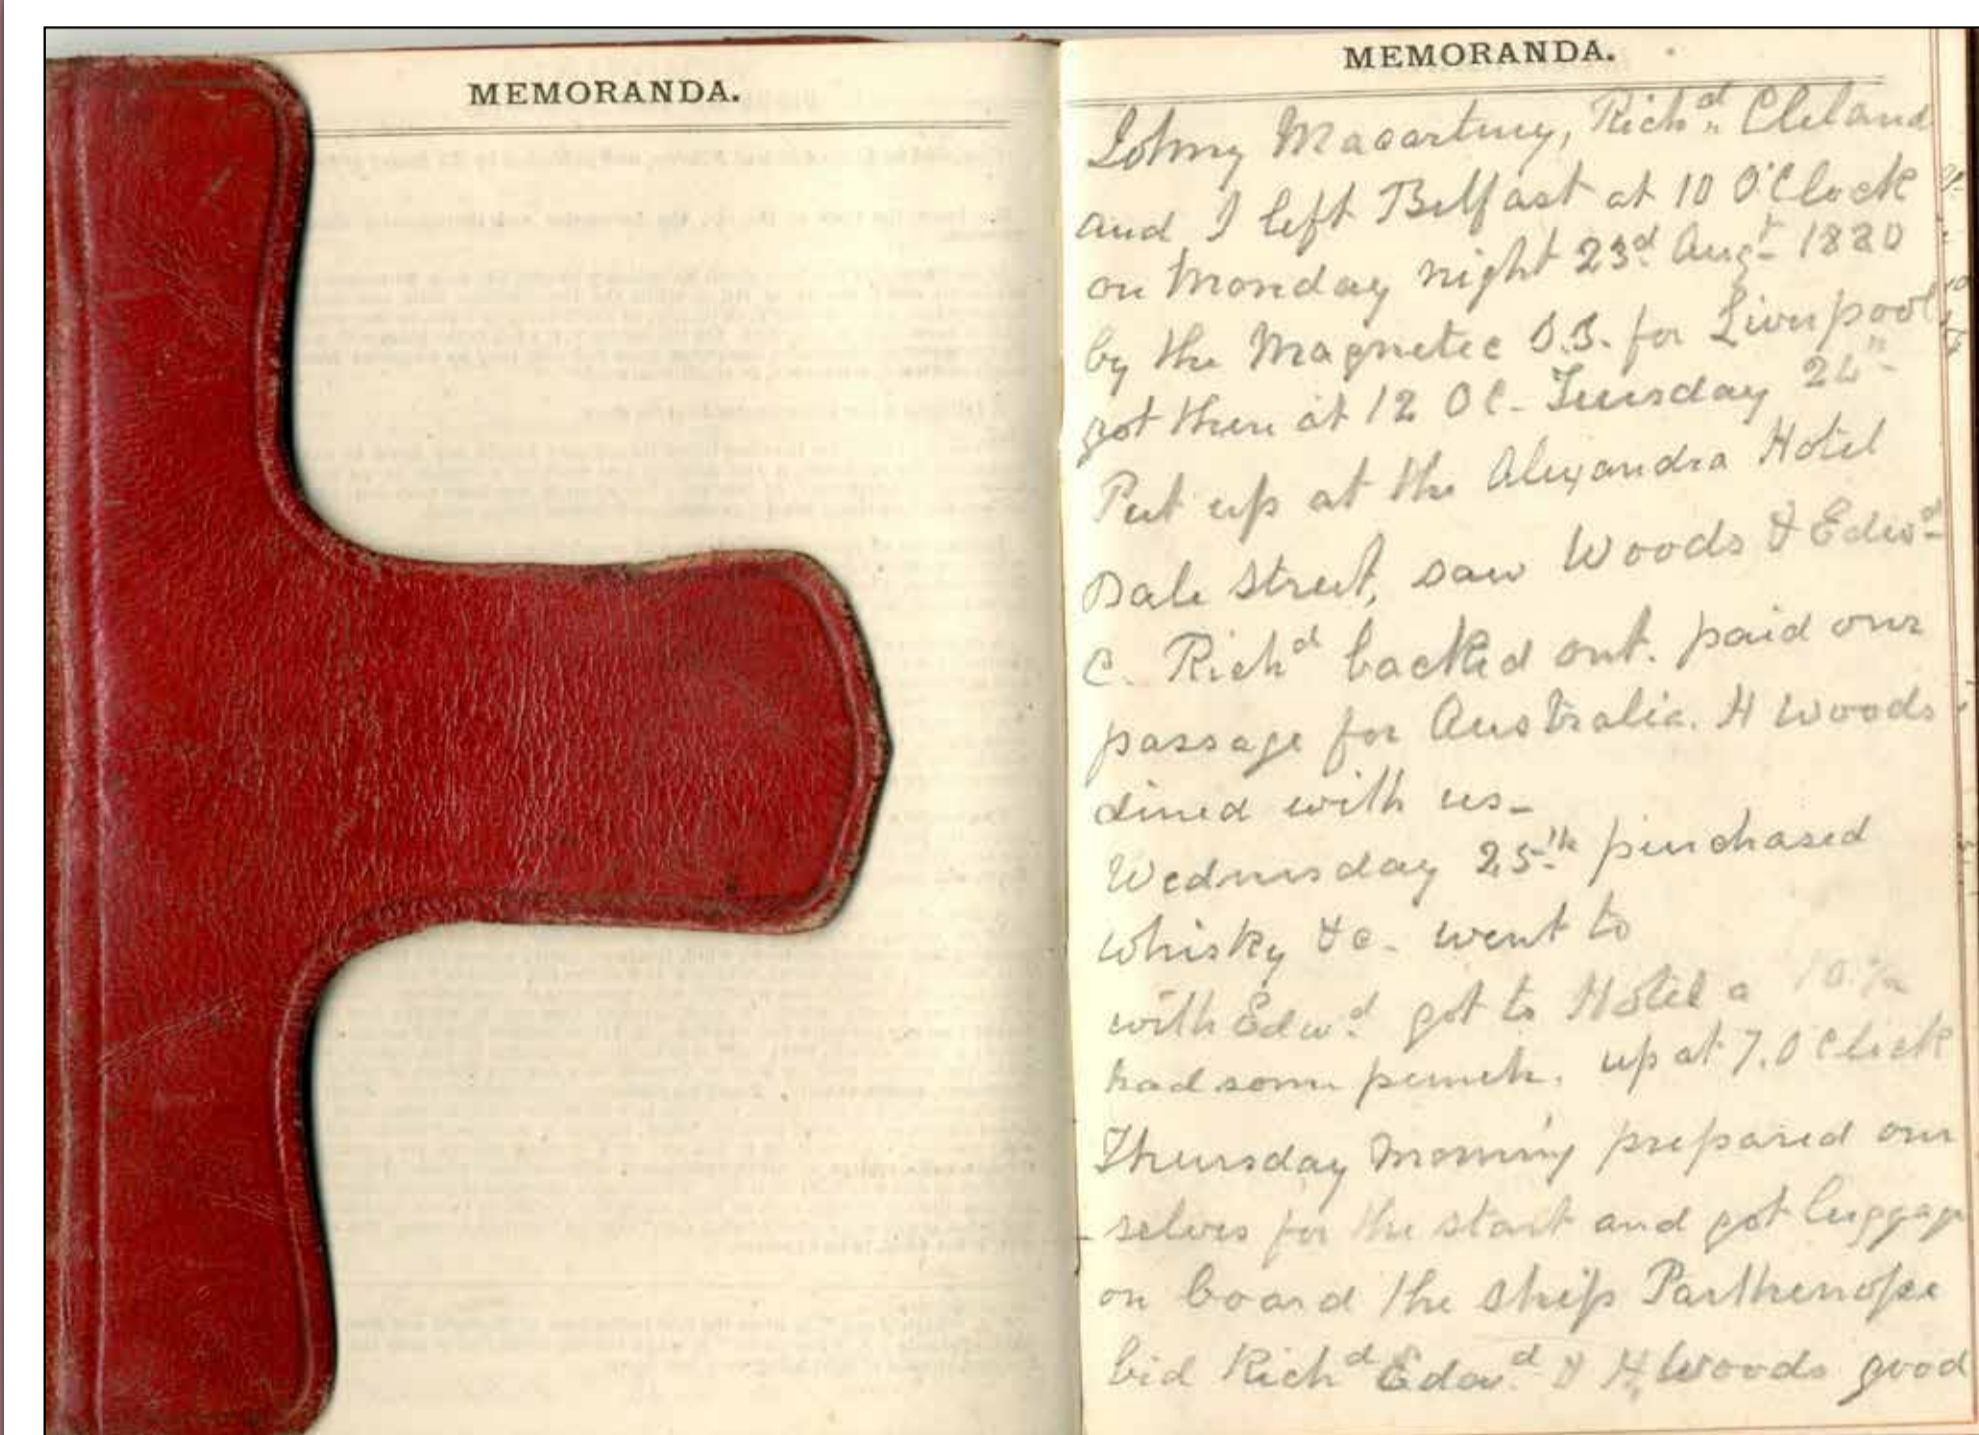 MEMORANDA.
MEMORANDA.
Johny Macartney, Richd. Cleland
and I left Belfast at 10 O'Clock
on Monday night 23d Augt 1880
by the Magnetic S.S. for Liverpool
got there at 12 OC- Tuesday 24th
Put up at the Alexandra Hotel
Dale Street, saw Woods & Edwd
C. Richd backed out. paid our
passage for Australia. H Woods
dined with us-
Wednesday 25th purchased
whisky &c. went to
with Edwd got to Hotel a
had some punch. up at 7.0 Clock
Thursday morning prepared our
-selves for the start and got luggage
on board the ship Parthenope
bid Richd Edwd & H Woods good